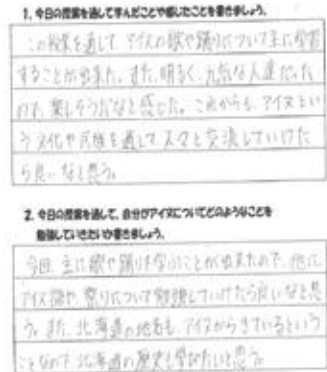 1. 今日の授業を通して学んだことや感じたことを書きましょう。
この授業を通して、アイヌの歌や踊りについて主に学習
することが出来た。また、明るく、元気な人達だった
ので、楽しそうだなと感じた。これからも、アイヌとい
う文化や民族を通して人々と交流していけた
ら良いなと思う。
2. 今日の授業を通して、自分がアイヌについてどのようなことを
勉強していきたいか書きましょう。
今回、主に歌や踊りを学ぶことが出来たので、他に
アイヌ語や、祭りについて勉強していけたら良いなと思
う。また、北海道の地名も、アイヌからきているという
ことなので北海道の歴史も学びたいと思う。